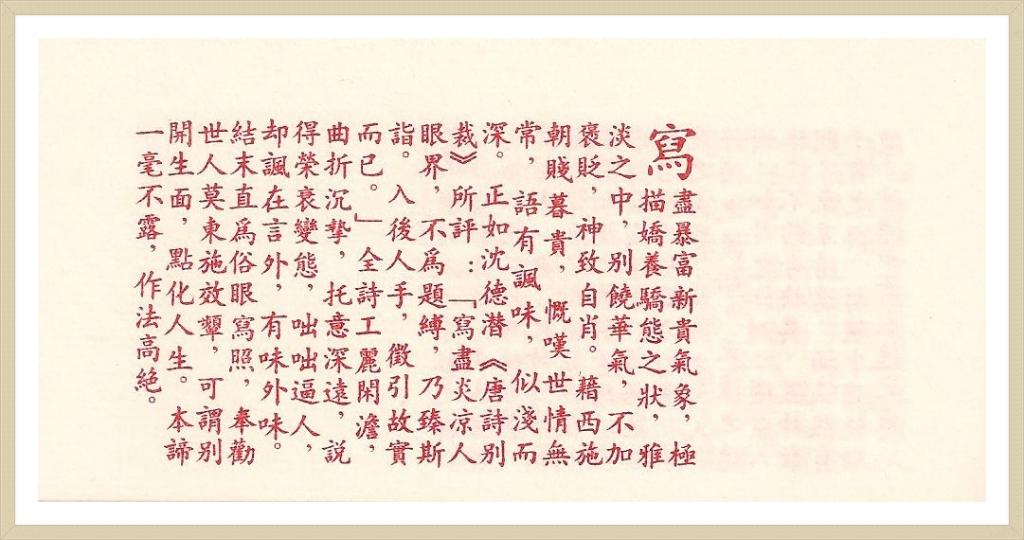 寫盡暴富新貴氣象，極
描嬌養驕態之狀，雅
淡之中，别饒華氣，不加
褒貶，神致自肖。藉西施
朝賤暮貴，慨嘆世情無
常，語有諷味，似淺而
深。正如沈德潜《唐詩别
裁》所評：「寫盡炎凉人
眼界，不爲題縛，乃臻斯
詣。入後人手，徵引故實
而已。」全詩工麗閑澹，
曲折沉摯，托意深遠，説
得榮衰變態，咄咄逼人，
却諷在言外，有味外味。
結末直爲俗眼寫照，奉勸
世人莫東施效顰，可謂别
開生面，點化人生。本諦
一毫不露，作法高絶。